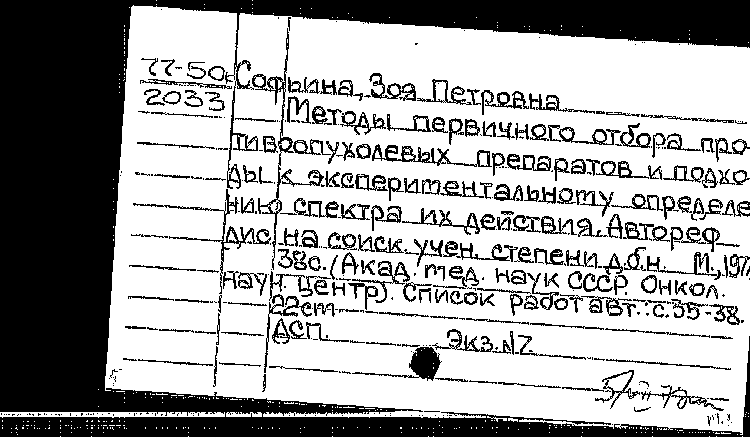 77-50с Софьина, Зоя Петровна
2033
Методы первичного отбора про-
тивоопухолевых препаратов и подхо-
ды к экспериментальному определе-
нию спектра их действия. Автореф
дис. на соиск. учен. степени д.б.н. М., 197
38с. (Акад. мед. наук СССР. Онкол.
науч. центр). Список работ авт.: с.35-38.
22cm
ДСП. Экз.N7.